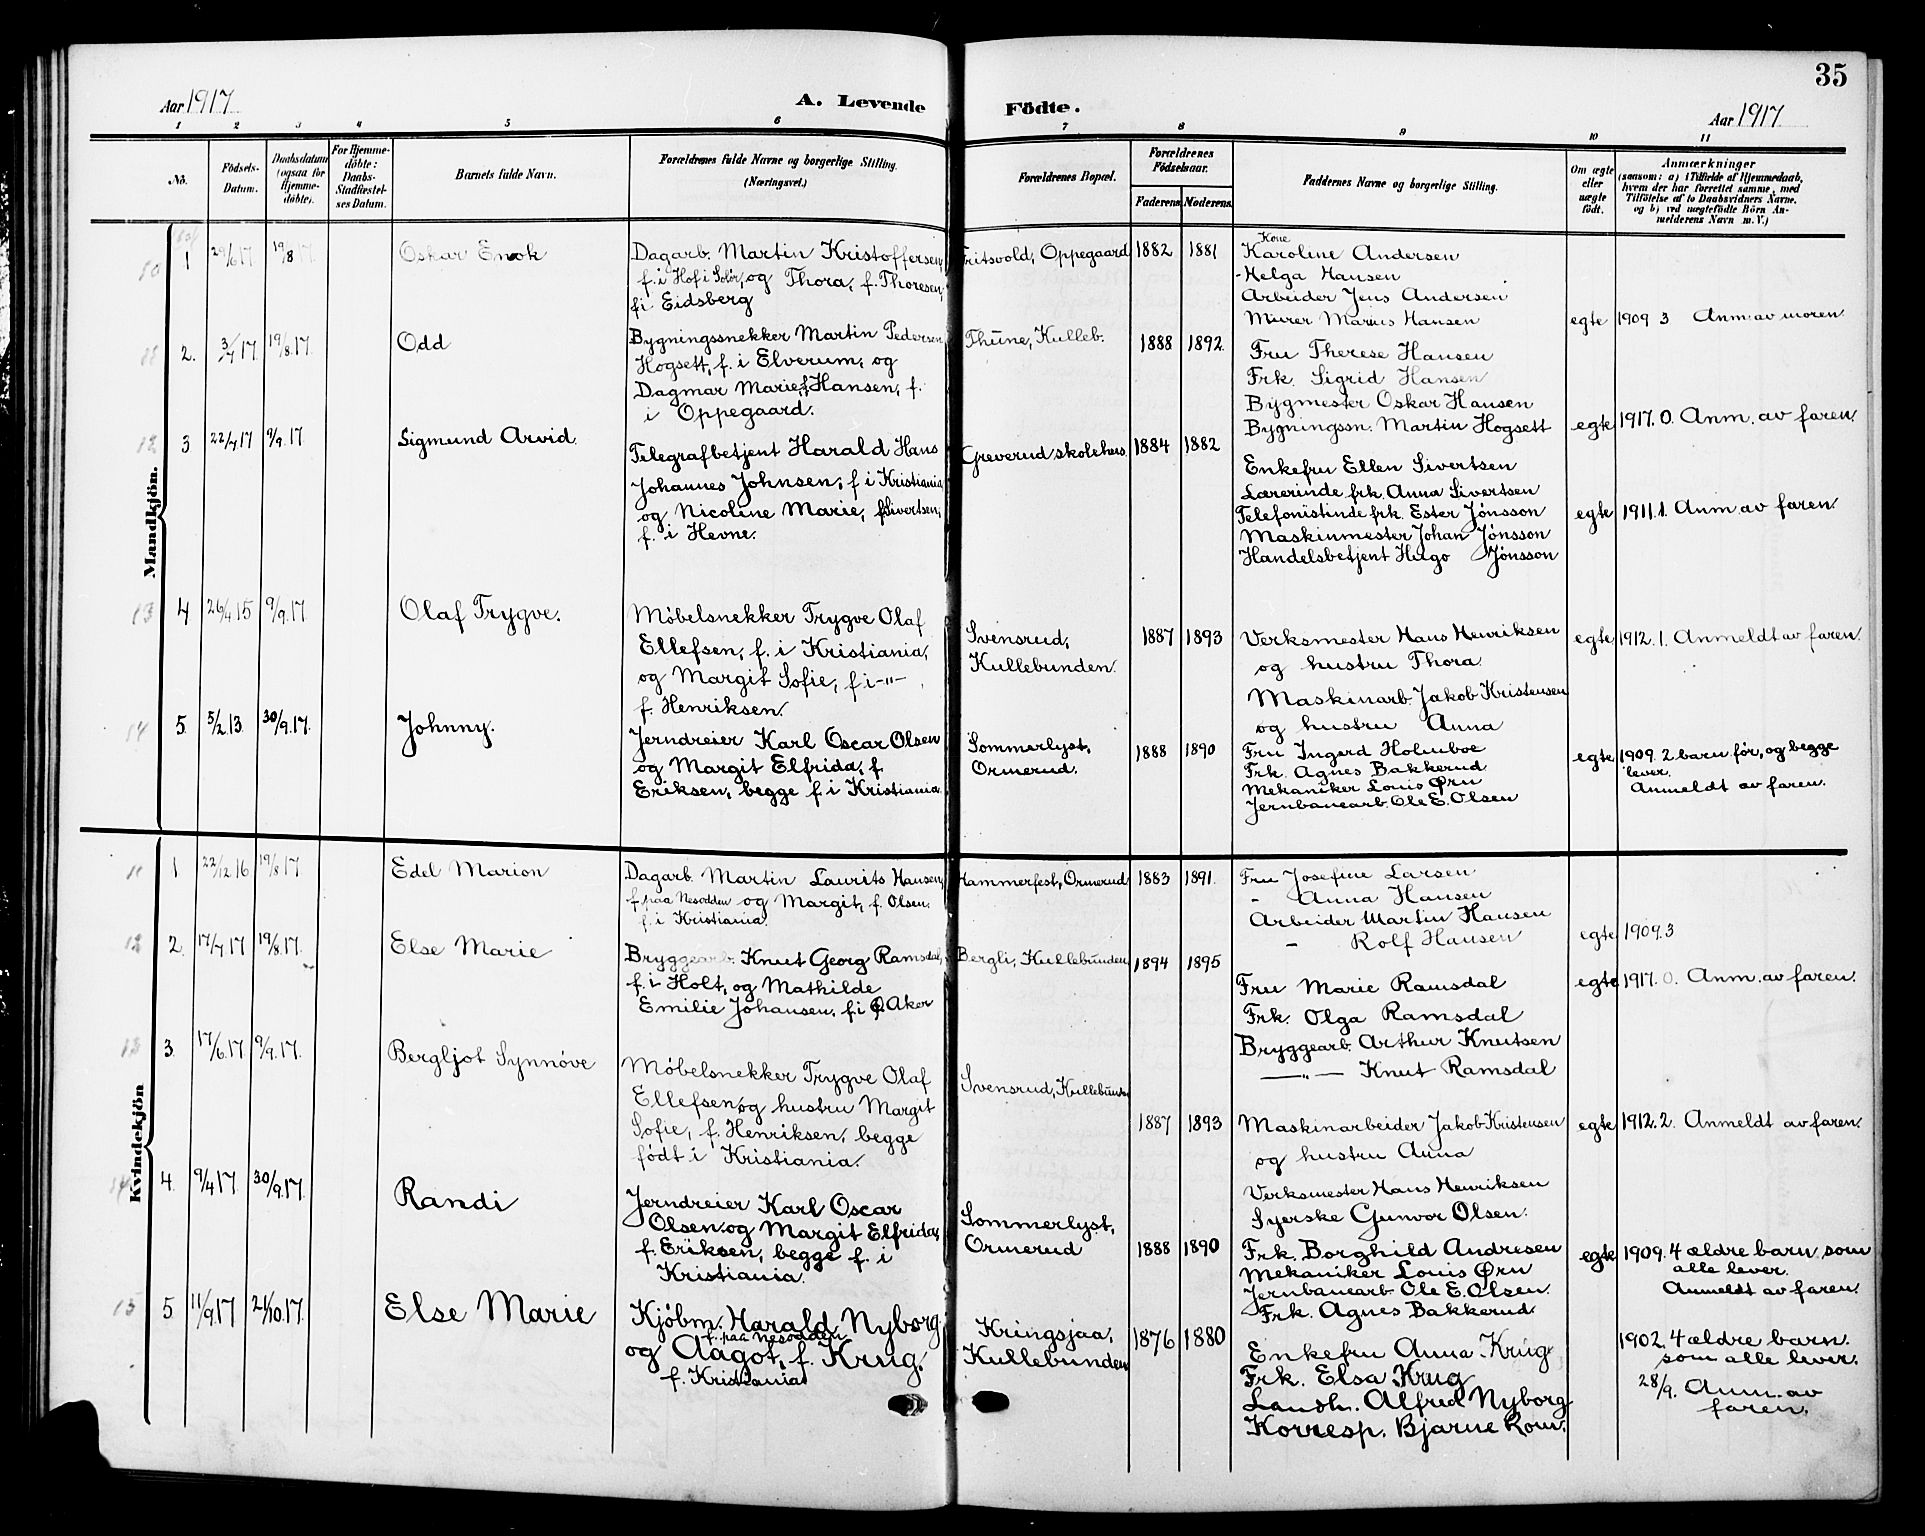 35
Aar 1917
A. Levende Födte.
Aar 1917
1 2 3 4 5 6 7 8 9 10 11
No.
Födsels-Datum.
Daabsdatum (ogsaa for Hjemme-döbte).
For Hjemme-döbte: Daabs-Stadfæstel-ses Datum.
Barnets fulde Navn.
Forældrenes fulde Navne og borgerlige Stilling.
(Næringsvei.)
Forældrenes Bopæl.
Forældrenes Födselsaar.
Faderens Moderens
Faddernes Navne og borgerlige Stilling.
Om ægte eller uægte födt.
Anmærkninger
(saasom: a) i Tilfælde af Hjemmedaab,
hvem der har forrettet samme, med
Tilföielse af to Daabsvidners Navne,
og b) ved uægtefödte Börn An-
melderens Navn m. V.)
Mandkjön.
1 29/6 17 19/8 17. Oskar Enok
Dagarb. Martin Kristoffersen,
f. i Hof i Solör, og Thora, f. Thoresen,
f. i Eidsberg
Fritsvold, Oppegaard 1882 1881
Kone
Karoline Andersen
- Helga Hansen
Arbeider Jens Andersen
Murer Marius Hansen
egte 1909 3 Anm. av moren.
2. 3/7 17. 19/8.17. Odd
Bygningssnekker Martin Pedersen
Hogsett, f. i Elverum, og
Dagmar Marie, f. Hansen, f.
i Oppegaard.
Thune, Kulleb. 1888 1892.
Fru Therese Hansen
Frk. Sigrid Hansen
Bygmester Oskar Hansen
Bygningssn. Martin Hogsett
egte 1917. 0. Anm. av faren.
12 3 22/7 17 9/9.17. Sigmund Arvid.
Telegrafbetjent Harald Hans
Johannes Johnsen, f. i Kristiania
og Nicoline Marie, f. Sivertsen,
f. i Hevne.
Greverud skolehus. 1884 1882
Enkefru Ellen Sivertsen
Lærerinde frk. Anna Sivertsen
Telefonistinde frk. Ester Jónsson
Maskinmester Johan Jónsson
Handelsbetjent Hugo Jónsson
egte 1911. 1. Anm. av faren.
13 4 26/4.15 9/9.17. Olaf Trygve.
Möbelsnekker Trygve Olaf
Ellefsen, f. i Kristiania,
og Margit Sofie, f. i -"-,
f. Henriksen.
Svensrud,
Kullebunden.
1887 1893
Verksmester Hans Henriksen
og hustru Thora.
Maskinarb. Jakob Kristensen
og hustru Anna
egte 1912. 1. Anmeldt av faren.
14 5. 5/2.13. 30/9.17. Johnny.
Jerndreier Karl Oscar Olsen
og Margit Elfrida, f.
Eriksen, begge f. i Kristiania.
Sommerlyst,
Ormerud.
1888 1890
Fru Ingerd Holmboe
Frk. Agnes Bakkerud
Mekaniker Louis Ørn
Jernbanearb. Ole E. Olsen
egte 1909. 2 barn før, og begge
lever.
Anmeldt av faren.
Kvindekjön
1 22/12.16 19/8 17 Edel Marion
Dagarb. Martin Laurits Hansen,
f. paa Nesodden og Margit, f. Olsen,
f. i Kristiania.
Hammerfest, Ormerud 1883 1891.
Fru Josefine Larsen
- Anna Hansen
Arbeider Martin Hansen
- Rolf Hansen
egte 1909. 3
12 2. 17/7.17 19/8.17. Else Marie
Bryggearb. Knut Georg Ramsdal,
f. i Holt, og Mathilde
Emilie Johansen, f. i Ø. Aker
Bergli, Kullebunden 1894 1895
Fru Marie Ramsdal
Frk. Olga Ramsdal
Bryggearb. Arthur Knutsen
-"- Knut Ramsdal
egte 1917. 0. Anm. av faren.
13 3. 17/6.17 9/9.17. Bergljot Synnöve
Möbelsnekker Trygve Olaf
Ellefsen, og hustru Margit
Sofie, f. Henriksen, begge
födt i Kristiania.
Svensrud, Kullebunden
1887 1893
Maskinarbeider Jakob Kristensen
og hustru Anna
Verksmester Hans Henriksen
Syerske Gunvor Olsen.
egte 1912. 2. Anmeldt av faren.
14 4. 9/4 17. 30/9.17. Randi
Jerndreier Karl Oscar
Olsen og Margit Elfrida,
f. Eriksen, begge f. i
Kristiania.
Sommerlyst,
Ormerud
1888 1890
Frk. Borghild Andresen
Mekaniker Louis Ørn
Jernbanearb. Ole E. Olsen.
Frk. Agnes Bakkerud.
egte 1909. 4 ældre barn, som
alle lever.
Anmeldt av faren.
15 5 11/9.17 21/10.17. Else Marie
Kjöbm. Harald Nyborg
f. paa Nesodden
og Aagot, f. Krug.
f. Kristiania
Kringsjaa,
Kullebunden
1876 1880
Enkefru Anna Krug
Frk. Elsa Krug
Landh. Alfred Nyborg
Korresp. Bjarne Rom.
1902. 4 ældre barn.
som alle lever.
28/9. Anm. av
faren.